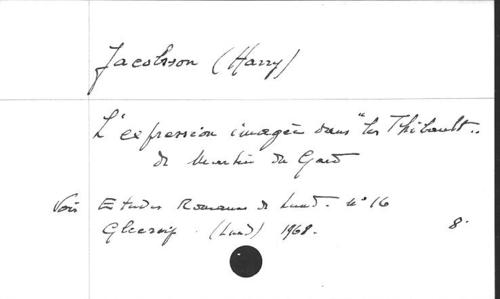 Jacobsson (Harry)
L'expression imagée dans "les Thibault"
de Martin du Gard
Voir Etudes Romanes de Lund. n° 16
Gleerup (Lund) 1968. 8.